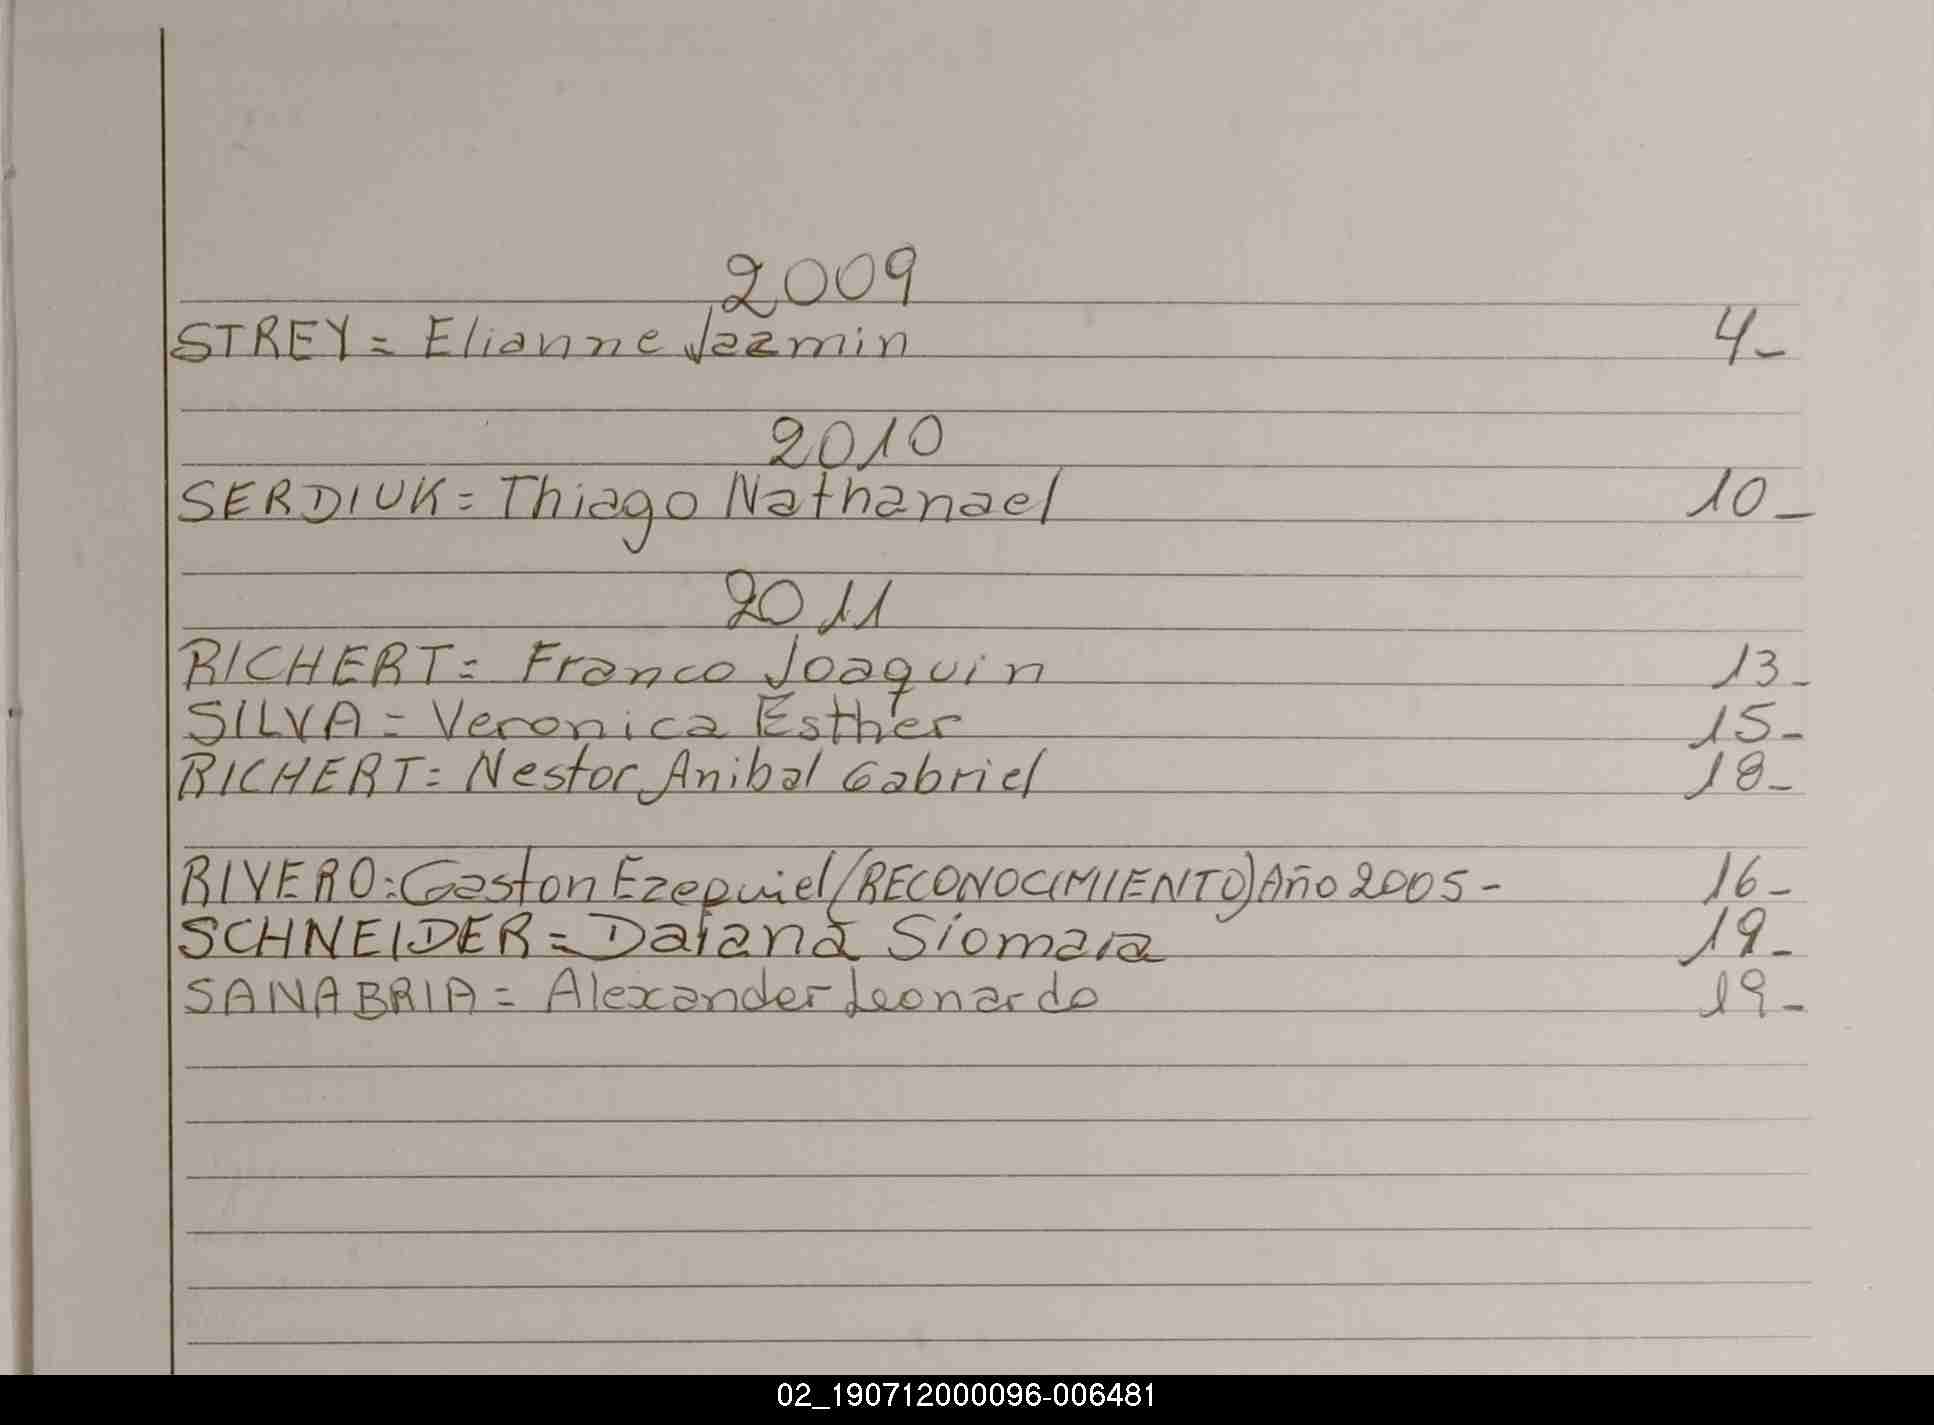 2009
STREY = Elianne Jazmin 4-
2010
SERDIUK = Thiago Nathanael 10-
2011
RICHERT = Franco Joaquin 13-
SILVA = Veronica Esther 15-
RICHERT = Nestor Anibal Gabriel 18-
RIVERO = Gaston Ezequiel (RECONOCIMIENTO) Año 2005- 16-
SCHNEIDER = Daiana Siomara 19-
SANABRIA = Alexander Leonardo 19-
02_190712000096-006481